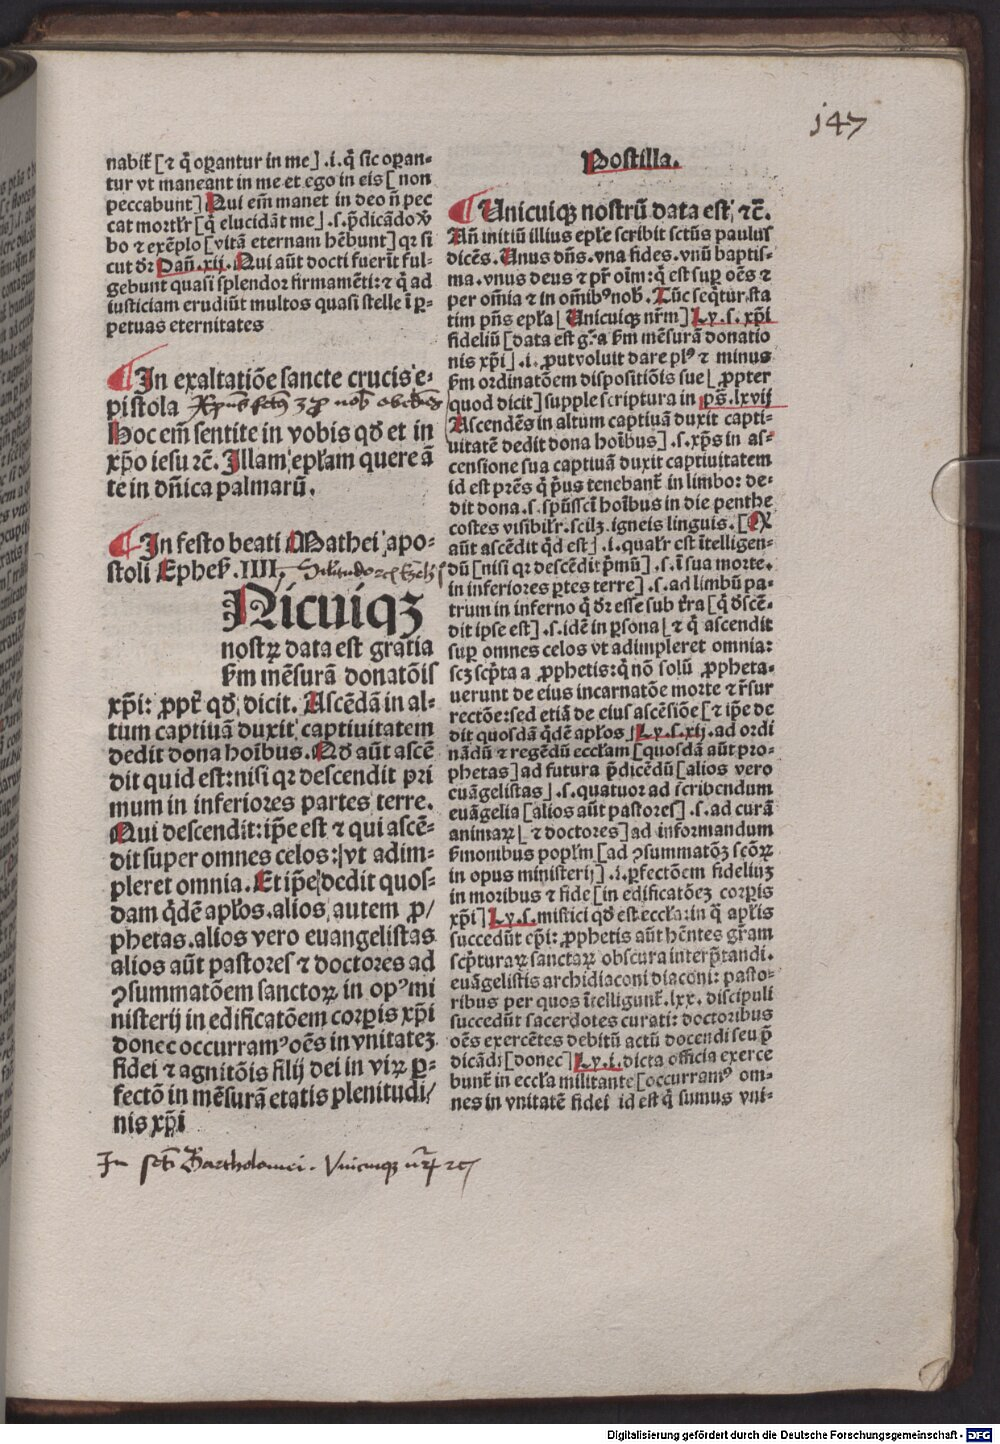 147
nabit᷑ [⁊ q̄ oꝑantur in me] .i. q̄ sic oꝑan⸗
tur vt maneant in me et ego in eis [non
peccabunt] Qui em̄ manet in deo n̄ pec
cat mortlr̄ [q̄ elucidāt me] .s. p̄dicādo v̄
bo ⁊ exēplo [vitā eternam hēbunt] qr si
cut dr̄ Dañ.xij. Qui aūt docti fuerīt ful⸗
gebunt quasi splendor firmamēti: ⁊ q̄ ad
iusticiam erudiūt multos quasi stelle ī ꝑ⸗
petuas eternitates
¶ In exaltatiōe sancte crucis e⸗
pistola
Hoc em̄ sentite in vobis qd̄ et in
xp̄o iesu ⁊c̄. Illam epl̄am quere ā
te in dn̄ica palmarū.
¶ In festo beati Mathei apo⸗
stoli Ephes̄. IIII.
VNicuiqꝫ
nostrꝝ data est gratia
s̄m mēsurā donatōis
xp̄i: ꝓpt᷑ qd̄ dicit. Ascēdā in al⸗
tum captiuā duxit captiuitatem
dedit dona hoībus. Qd̄ aūt ascē
dit quid est: nisi qr descendit pri
mum in inferiores partes terre.
Qui descendit: ip̄e est ⁊ qui ascē⸗
dit super omnes celos: vt adim⸗
pleret omnia. Et ip̄e dedit quos⸗
dam q̄dē apl̄os. alios autem ꝓ/
phetas. alios vero euangelistas
alios aūt pastores ⁊ doctores ad
ꝯsummatōem sanctoꝝ in opꝰ mi
nisterij in edificatōem corꝑis xp̄i
donec occurramꝰ oēs in vnitateꝫ
fidei ⁊ agnitōis filij dei in virꝝ ꝑ⸗
fectō in mēsurā etatis plenitudi/
nis xp̄i
In scti Bartholomei. Vnicuiqꝫ nr̄ꝝ ⁊c
Postilla.
¶ Unicuiqꝫ nostrū data est ⁊c̄.
Añ initiū illius epl̄e scribit sctūs paulus
dicēs. Unus dn̄s. vna fides. vnū baptis⸗
ma. vnus deus ⁊ pr̄ oīm: q̄ est suꝑ oēs ⁊
per om̄ia ⁊ in om̄ibꝰ nob̄. Tūc seq̄tur sta
tim pn̄s epl̄a [Unicuiqꝫ nr̄m] Ly. s. xp̄i
fideliū [data est gr̄a s̄m mēsurā donatio
nis xp̄i] .i. ꝓut voluit dare plꝰ ⁊ minus
s̄m ordinatōem dispositiōis sue [ꝓpter
quod dicit] supple scriptura in ps̄. lxvij
Ascendēs in altum captiuā duxit capti⸗
uitatē dedit dona hoībus] .s. xp̄s in as⸗
censione sua captiuā duxit captiuitatem
id est prēs q̄ p̄us tenebant᷑ in limbo: de⸗
dit dona .s. spūssci hoībus in die penthe
costes visibilr̄. scilꝫ. igneis linguis. [Q
aūt ascēdit qd̄ est] .i. qualr̄ est ītelligen⸗
dū [nisi qr descēdit p̄mū] .s. ī sua morte.
in inferiores ꝑtes terre] .s. ad limbū pa⸗
trum in inferno q̄ dr̄ esse sub t̄ra [q̄ dscē⸗
dit ipse est] .s. idē in ꝑsona [⁊ q̄ ascendit
suꝑ omnes celos vt adimpleret omnia:
scꝫ scp̄ta a ꝓphetis: q̄ nō solū ꝓpheta⸗
uerunt de eius incarnatōe morte ⁊ r̄sur
rectōe: sed etiā de eius ascēsiōe [⁊ ip̄e de
dit quosdā q̄dē apl̄os] Ly. s. xij. ad ordi
nādū ⁊ regēdū eccl̄am [quosdā aūt pro⸗
phetas] ad futura p̄dicēdū [alios vero
euāgelistas] .s. quatuor ad scribendum
euāgelia [alios aūt pastores] .s. ad curā
animaꝝ [⁊ doctores] ad informandum
s̄monibus popl̄m [ad ꝯsummatōꝫ scōꝝ
in opus ministerij] .i. ꝑfectōem fideliuꝫ
in moribus ⁊ fide [in edificatōeꝫ corꝑis
xp̄i] Ly. s. mistici qd̄ est eccl̄a: in q̄ apl̄is
succedūt ep̄i: ꝓphetis aūt hēntes gr̄am
scp̄turaꝝ sanctaꝝ obscura interp̄tandi.
euāgelistis archidiaconi diaconi: pasto⸗
ribus per quos ītelligunt᷑. lxx. discipuli
succedūt sacerdotes curati: doctoribus
oēs exercētes debitū actū docendi seu p̄
dicādi [donec] Ly. i. dicta officia exerce
bunt᷑ in eccl̄a militante [occurramꝰ om⸗
nes in vnitatē fidei id est q̄ sumus vni⸗
Digitalisierung gefördert durch die Deutsche Forschungsgemeinschaft - DFG